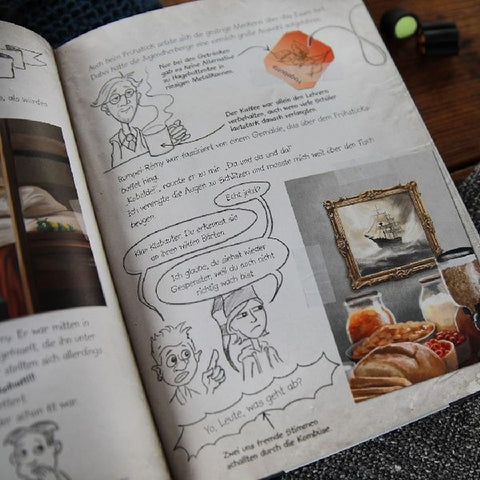 s, als würden
my. Er war mitten in
die ihn unter
stellten sich allerdings
er schon fit war.
Auch beim Frühstück setzte sich die gestrige Meckerei über das Essen fort.
Dabei hatte die Jugendherberge eine ziemlich große Auswahl aufgefahren.
Nur bei den Getränken
gab es keine Alternative
zu Hagebuttentee in
riesigen Metallkannen.
Der Kaffee war allein den Lehrern
vorbehalten, auch wenn viele Schüler
lautstark danach verlangten.
Rumpel-Rémy war fasziniert von einem Gemälde, das über dem Frühstücks-
büffet hing.
„Kobolde!“, raunte er zu mir. „Da und da und da!“
Ich verengte die Augen zu Schlitzen und musste mich weit über den Tisch
beugen.
Echt jetzt?
Klar, Klabauter. Du erkennst sie
an ihren wilden Bärten.
Ich glaube, du siehst wieder
Gespenster, weil du noch nicht
richtig wach bist.
Yo, Leute, was geht ab?
Zwei uns fremde Stimmen
schallten durch die Kombüse.